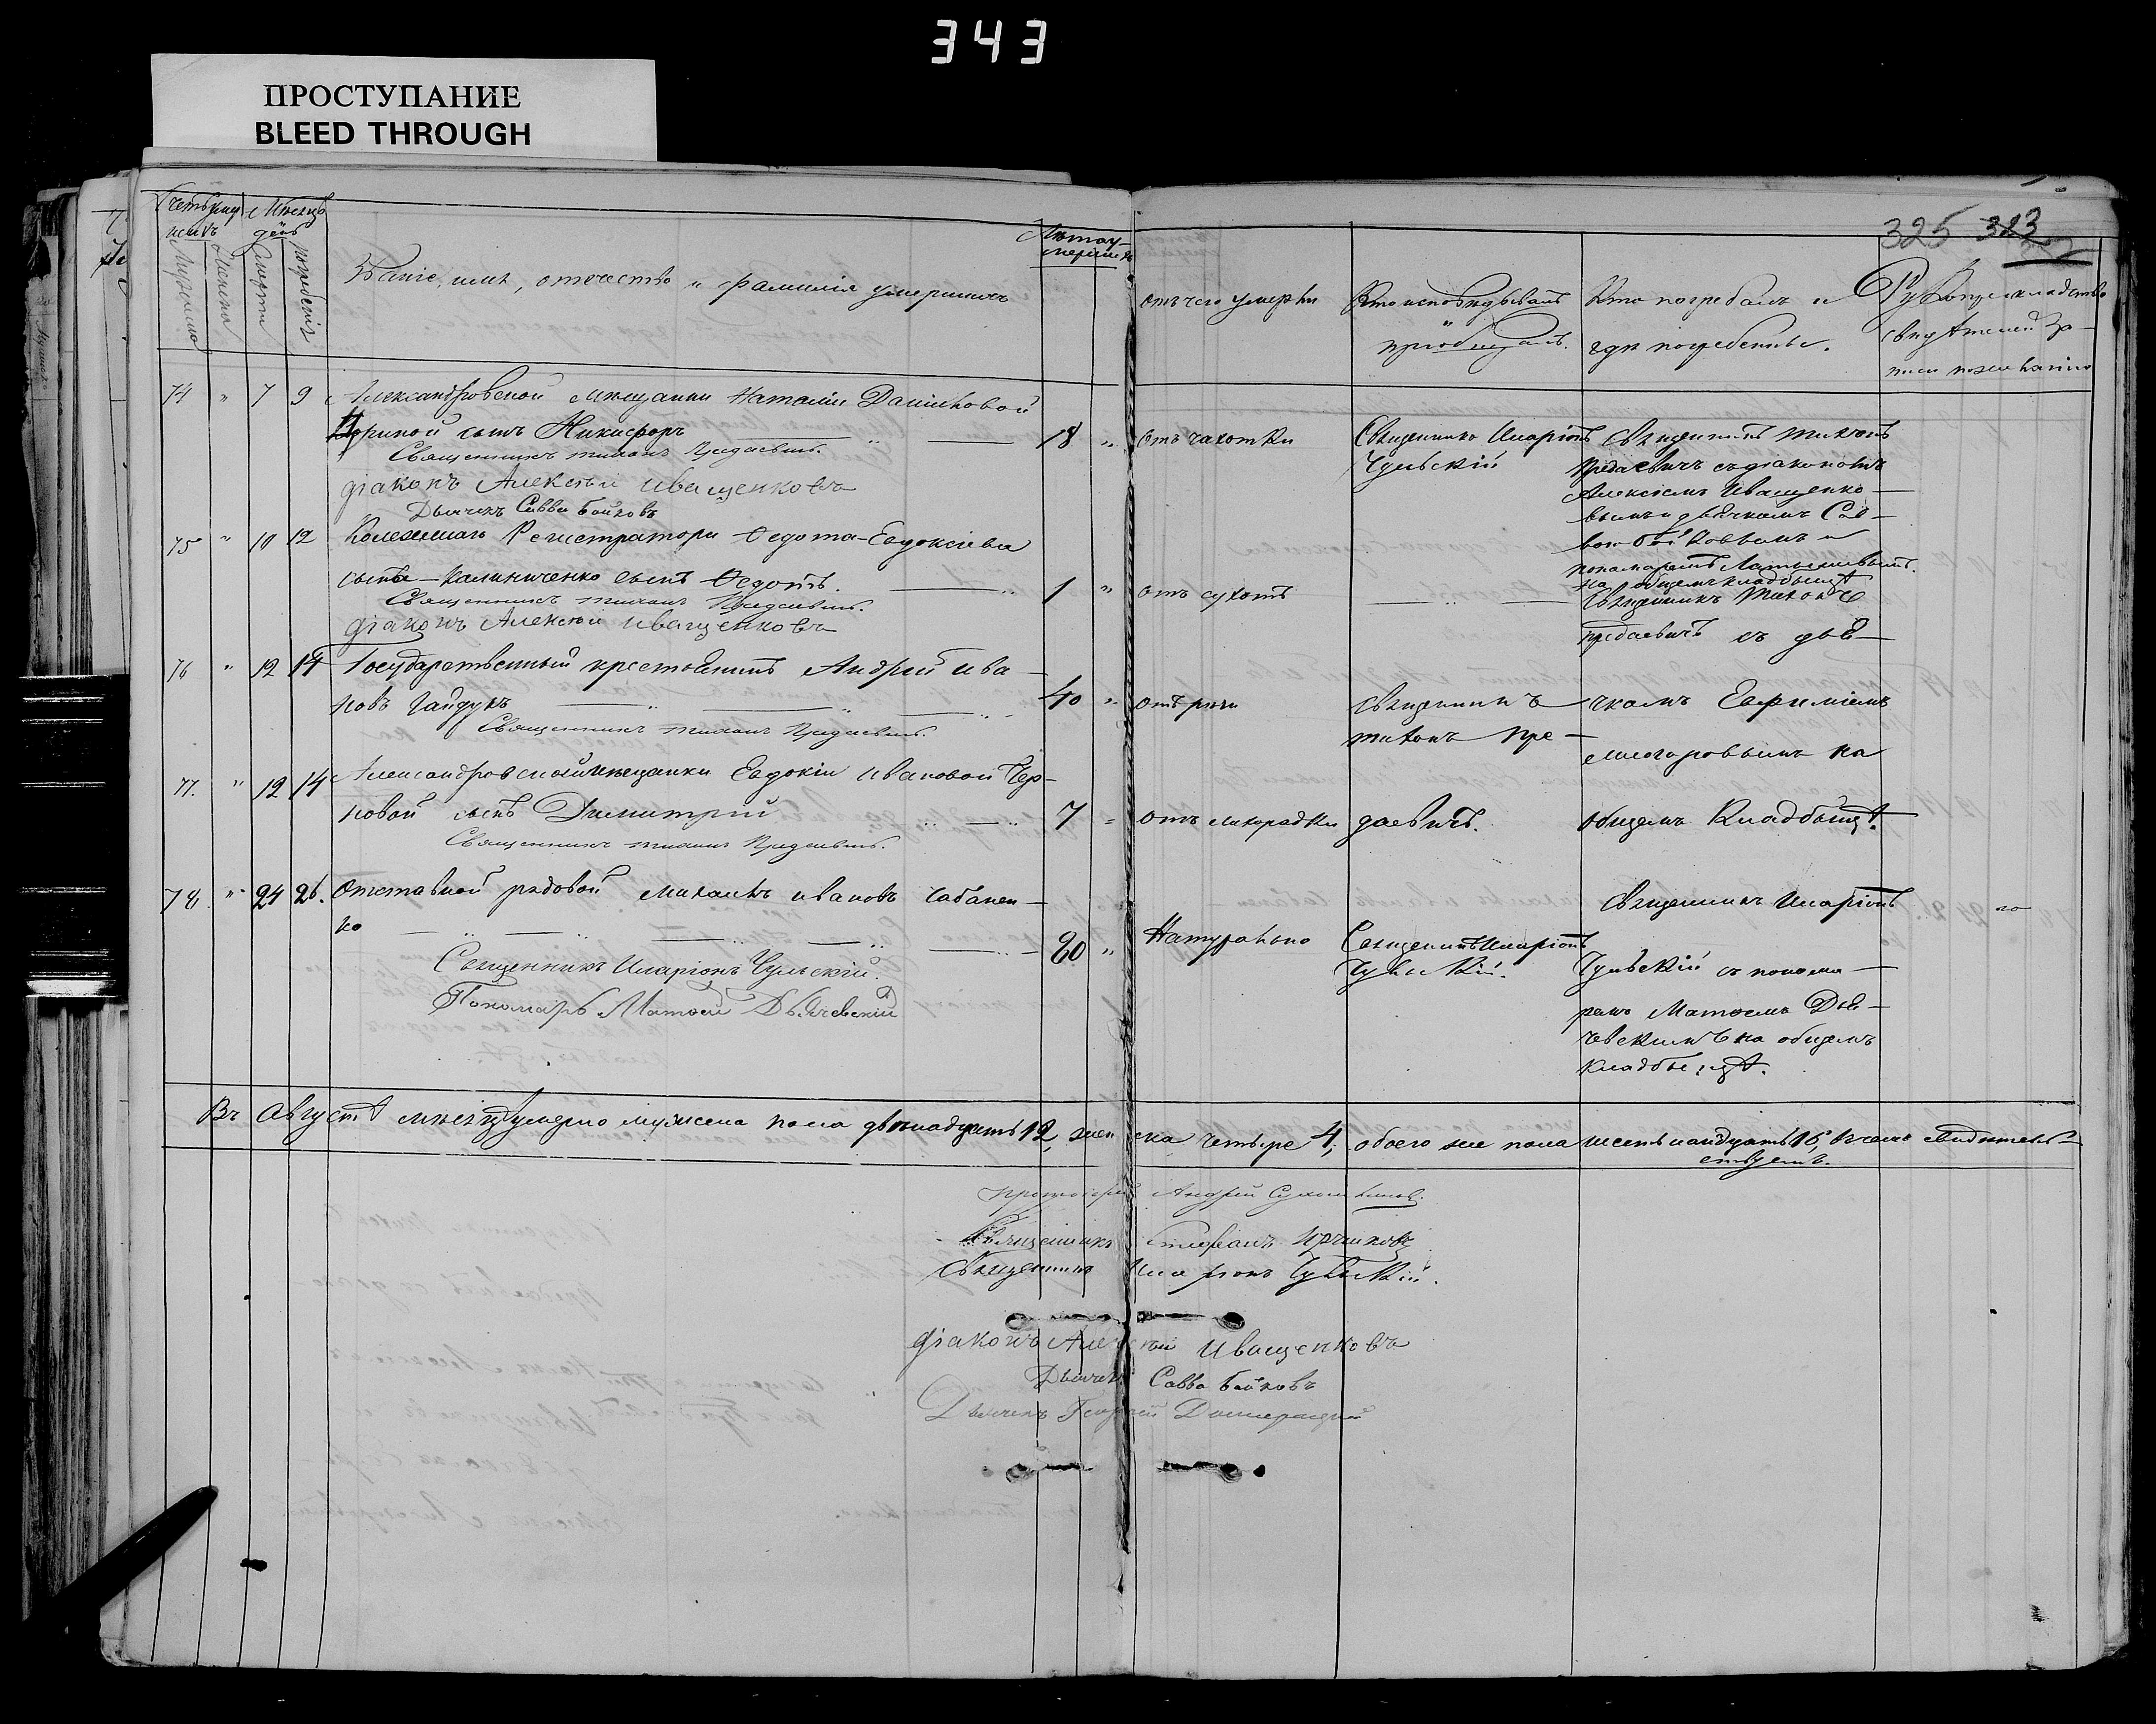 343
ПРОСТУПАНИЕ
BLEED THROUGH
325 323
Счетъ умершихъ
Мѣсяцъ и день
Мужеска
Женска
смерти
погребенія
Званіе, имя, отчество и фамилія умершихъ
Лѣта умершихъ
отъ чего умерли
Кто исповѣдывалъ и пріобщалъ.
Кто погребалъ и гдѣ погребены.
Рукоприкладство свидѣтелей записи по желанію
74 " 7 9 Александровской мѣщанки Наталіи Даниловой
сынъ Никифоръ 18 " отъ чахотки
Священникъ Иларіонъ
Чульскій
Священникъ Тихонъ
Предаевичъ съ діакономъ
Алексіемъ Иващенко-
вымъ и дьячкомъ Сав-
вою Бойковымъ и
пономаремъ
на общемъ кладбищѣ
Священникъ Тихонъ Предаевичъ.
діаконъ Алексѣй Иващенковъ
Дьячекъ Савва Бойковъ
75 " 10 12 Колежскаго Регистратора Ѳедота Евдокіева
сына Калиниченко сынъ Ѳедотъ. 1 " отъ сухотъ
Священникъ Тихонъ Предаевичъ.
діаконъ Алексѣй Иващенковъ
Священникъ Тихонъ
Предаевичъ съ дья-
76 " 12 14 Государственный крестьянинъ Андрей Ива-
новъ Гайдукъ 40 " отъ
Священникъ
Тихонъ Пре-
чкомъ Евфиміемъ
на
Священникъ Тихонъ Предаевичъ.
77. " 12 14 Александровской мѣщанки Евдокіи Ивановой Чер-
новой сынъ Димитрій 7 " отъ лихорадки
даевичъ.
общемъ Кладбищѣ.
Священникъ Тихонъ Предаевичъ.
78. " 24 26. Отставной рядовой Михаилъ Ивановъ Сабанен-
ко 80 " Натурально
Священникъ Иларіонъ
Чульскій.
Священникъ Иларіонъ
Чульскій съ понома-
ремъ Матѳеемъ Дья-
чевскимъ на общемъ
кладбищѣ.
Священникъ Иларіонъ Чульскій.
Пономарь Матѳей Дьячевскій
Въ Августѣ мѣсяцѣ умерло мужеска пола двѣнадцать 12, женска четыре 4, обоего же пола шестьнадцать 16, въ чемъ свидѣтель-
ствуемъ.
Протоіерей Андрей
Священникъ Стефанъ
Священникъ Иларіонъ Чульскій.
діаконъ Алексѣй Иващенковъ
Дьячекъ Савва Бойковъ
Дьячекъ Георгій